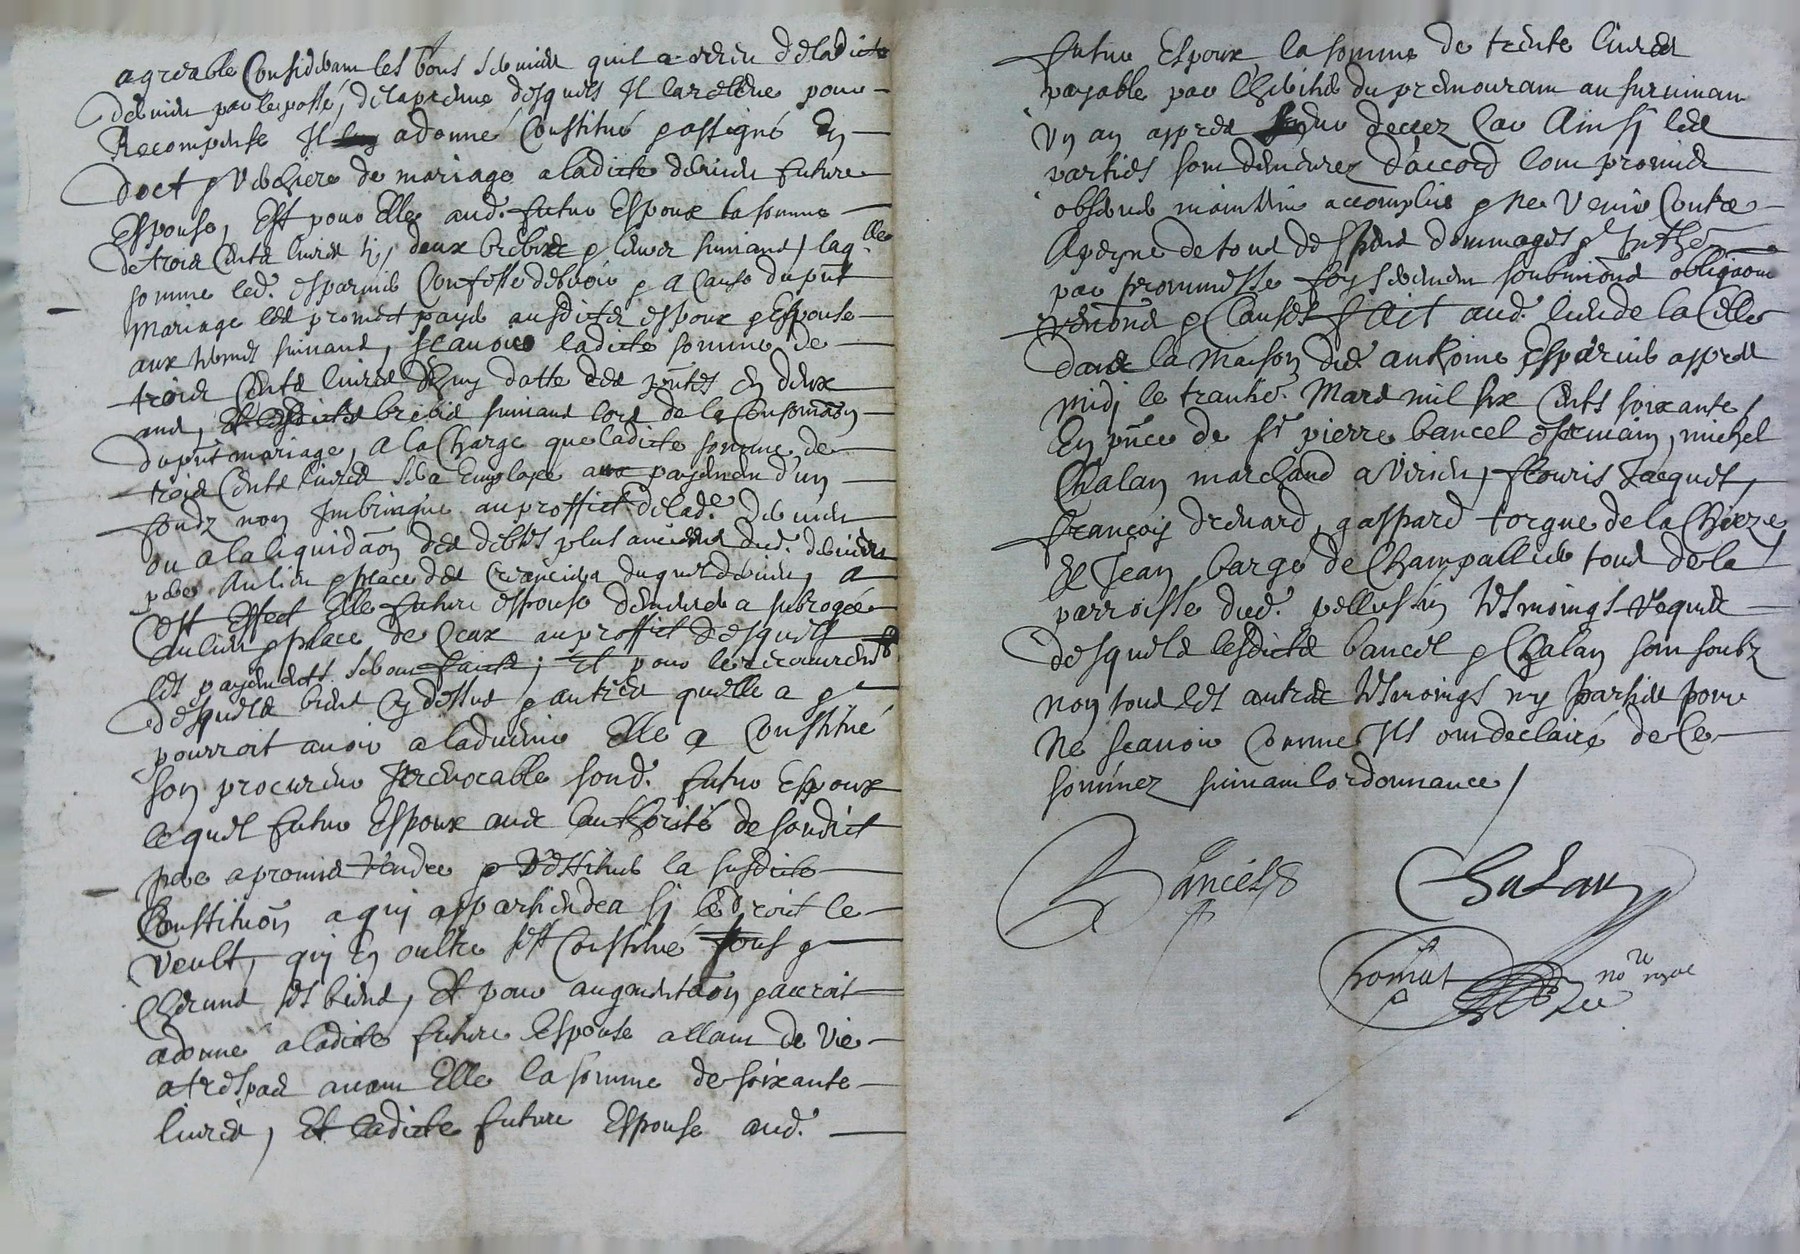 agreable Considerant les bons services quil a receu de ladicte
Dervieu par le passé, de la preuve desquels Il la relleve pour
Recompense Il a donné Constitué & assigné En
doct & verchere de mariage a ladicte dervieu future
Espouse, Et pour Elle aud. futur Espoux la somme
de trois Cents livres tz, deux brebis & leur suivans, laq.lle
somme led. esparvie Confesse debvoir & a Cause du pnt
Mariage les promet payer ausdictz espoux & Espouse
aux termes suivans, scavoir ladicte somme de
trois Cents livres d'huy datte des pntes En deux
ans, Et lesdictes brebis suivans lors de la Consommaōn
du pnt mariage, a la Charge que ladicte somme de
trois Cents livres sera Employee au payement d'un
fondz non Imbringué au proffict de lad.e Dervieu
ou a la liquidāon des debtes plus anciens dud. dervieu
pere Au lieu & place des Creanciers duquel dervieu, a
Cest Effect Elle future espouse demeurera subrogée
au lieu & place de Ceux au proffict desquels
les payements seront faicts, Et pour le recouvrement
desquels biens Cy dessus & autres quelle a &
pourroit avoir a ladvenir Elle a Constitué
son procureur Irrevocable sond. futur Espoux
lequel futur Espoux avec lauthorité de sondict
pere a promis rendre & Restituer la susdicte
Constitution a qui appartiendra si le droit le
veult, qui En oultre sest Constitué tous &
Chacuns ses biens, Et pour augmentāon & accroit
a donné a ladicte future Espouse allant de vie
a trespas avant Elle la somme de soixante
livres, Et ladicte future Espouse aud.
futur Espoux la somme de trente livres
payable par lheritier du premourant au survivant
Un an appres decez Car Ainsi les
parties sont demeurez d'accord lont promis
observer maintenir accomplir & ne Venir Contre
A peyne de tous despens dommages &
par promesse foy serment soubmions obligaōns
renons & Clauses faict aud. lieu de la Cille
dans la Maison dud. anthoine Esparvie appres
midi le Mars mil six Cents soixante,
En pnce de sr pierre bancel escrivain, michel
Chalan marchand a Virieu, flouris Jacquet,
françois drevard, gaspard torgue de la Chieze
Et Jean barge de Champallier tous de la
parroisse dud. pellussin tesmoings requis
desquels lesdicts bancel & Chalan sont soubz
non tous les autres tesmoings ny parties pour
Ne scavoir Comme Ils ont declairé de Ce
sommez suivant lordonnance /
Bancel Chalan
no.re royal